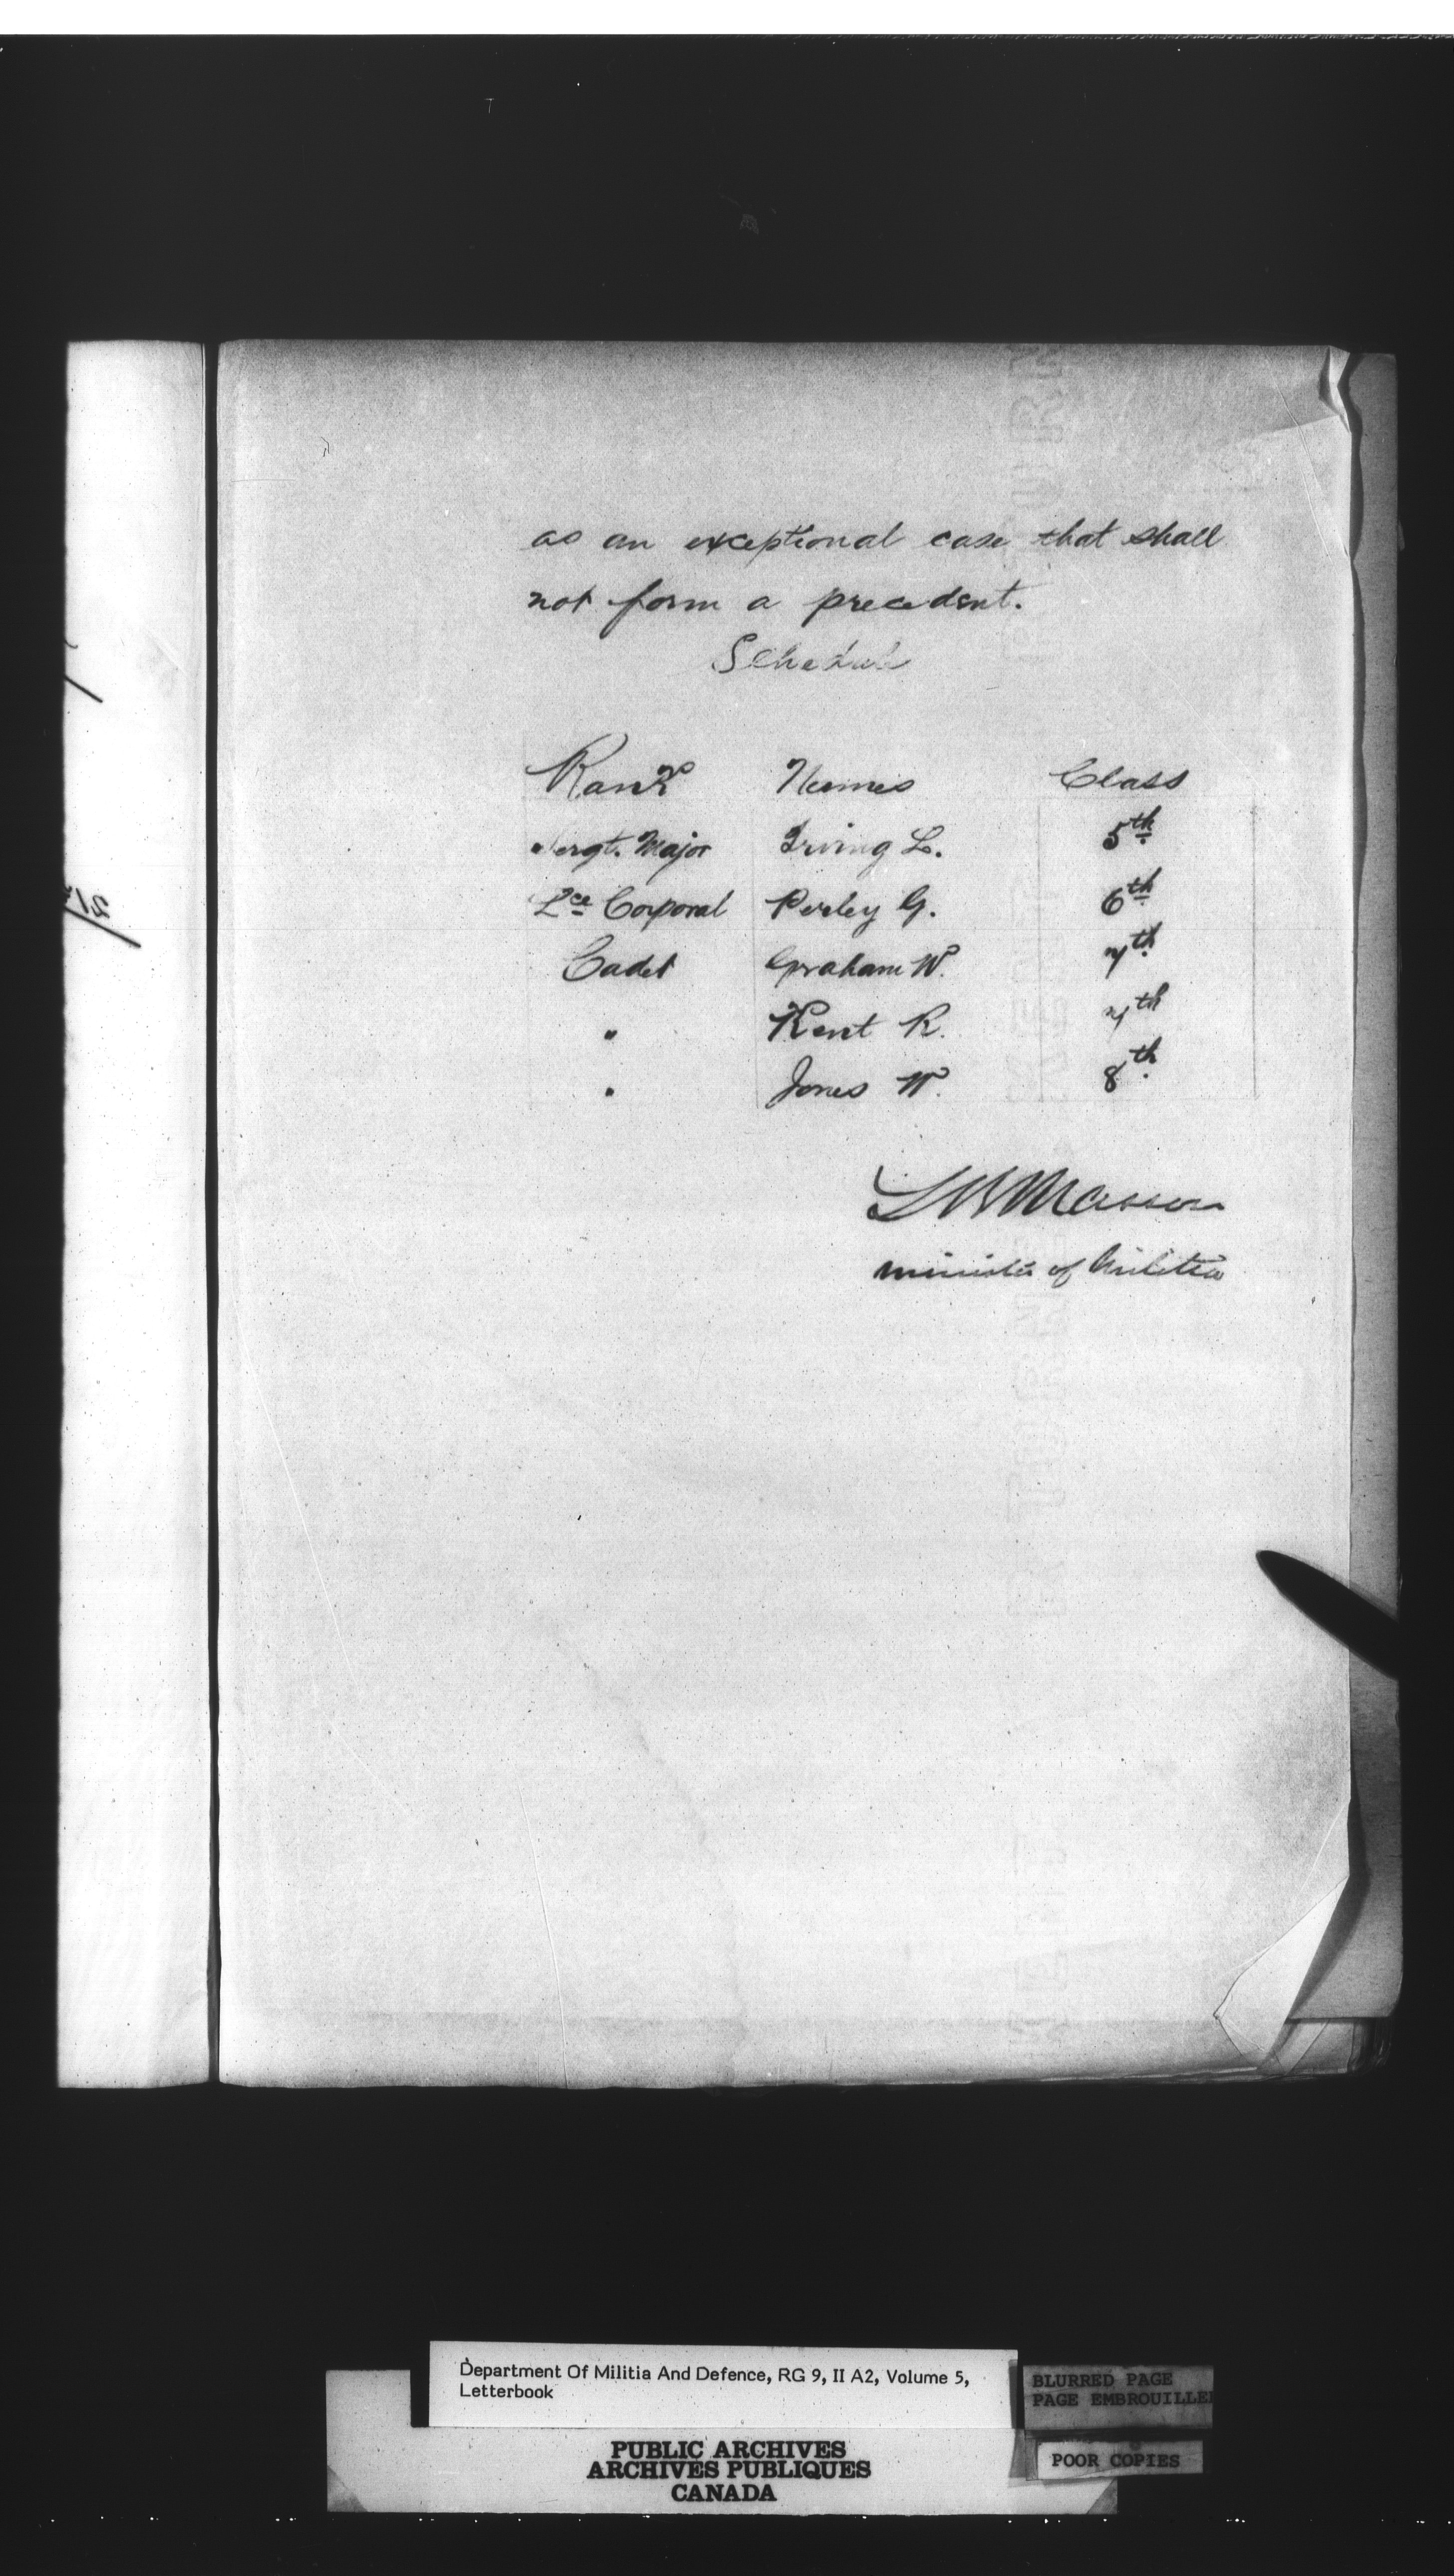 as an exceptional case that shall
not form a precedent.
Schedule
Rank Names Class
Sergt. Major Irving L. 5th
Lce Corporal Perley G. 6th
Cadet Graham W. 7th
" Kent R. 7th
" Jones W. 8th
LRMasson
Minister of Militia
Department Of Militia And Defence, RG 9, II A2, Volume 5,
Letterbook
BLURRED PAGE
PAGE EMBROUILLEE
POOR COPIES
PUBLIC ARCHIVES
ARCHIVES PUBLIQUES
CANADA